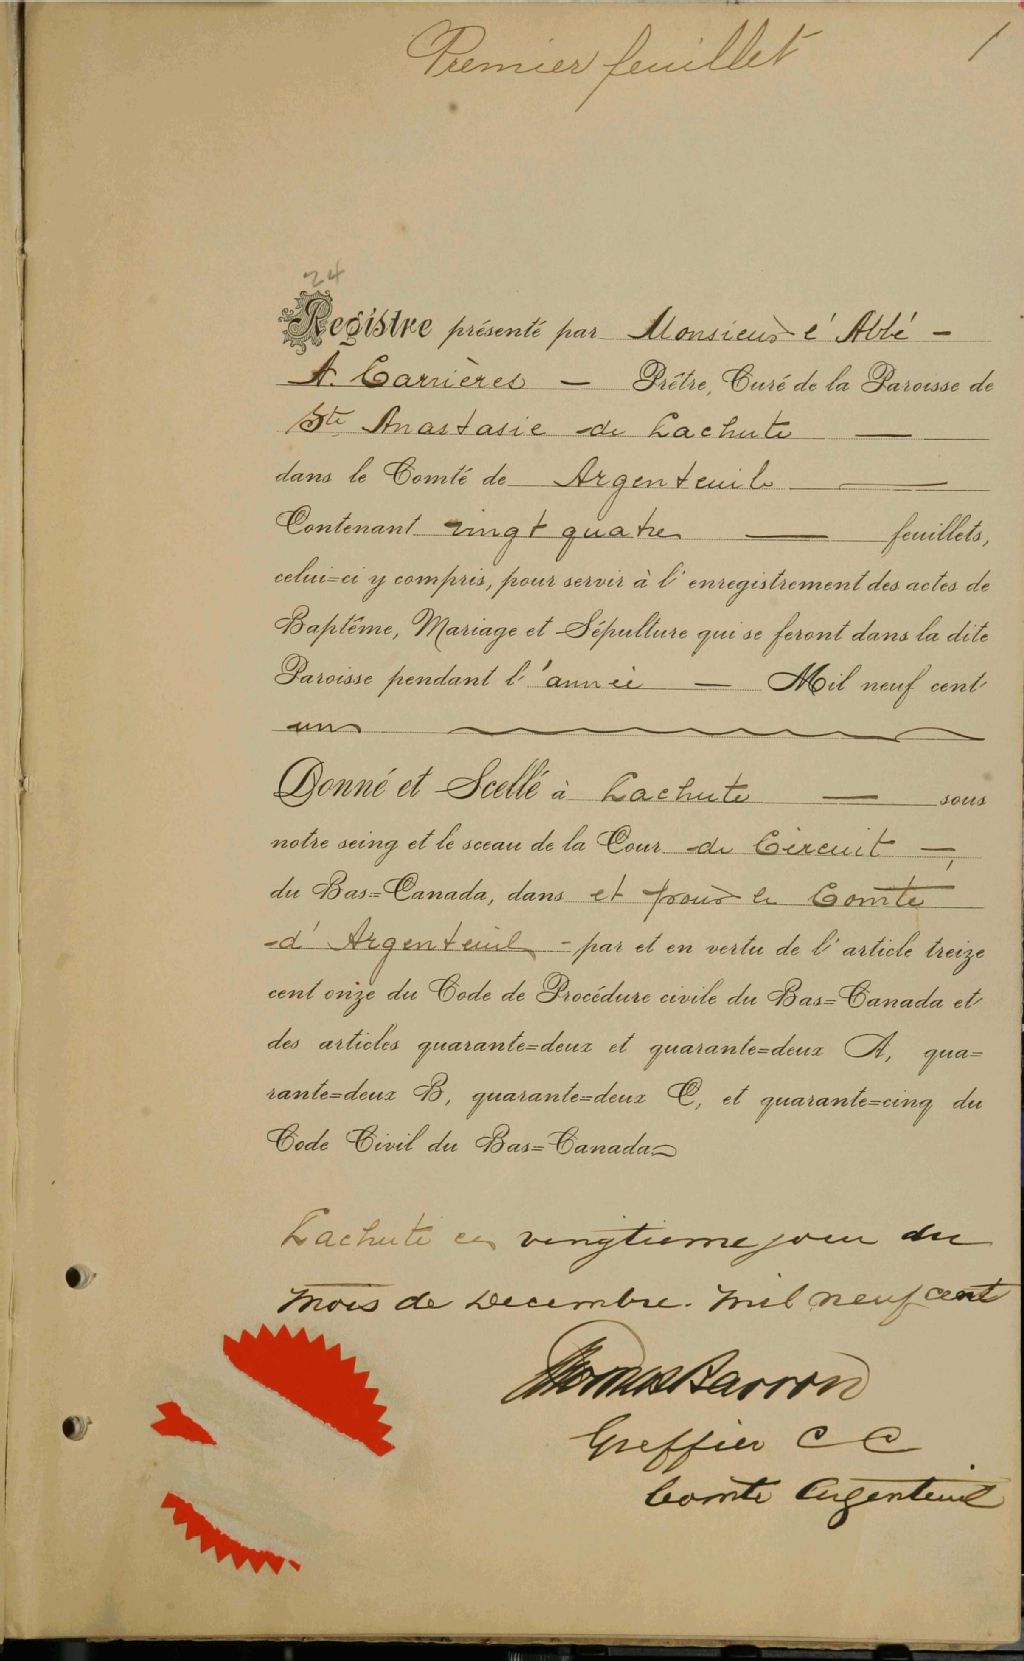 Premier feuillet
1
24
Registre présenté par Monsieur l'Abbé –
A. Carrières — Prêtre, Curé de la Paroisse de
Ste Anastasie de Lachute —
dans le Comté de Argenteuil —
Contenant vingt quatre — feuillets,
celui=ci y compris, pour servir à l'enregistrement des actes de
Baptême, Mariage et Sépulture qui se feront dans la dite
Paroisse pendant l'année — Mil neuf cent
un
Donné et Scellé à Lachute — sous
notre seing et le sceau de la Cour de Circuit —,
du Bas=Canada, dans et pour le Comté
d'Argenteuil - par et en vertu de l'article treize
cent onze du Code de Procédure civile du Bas=Canada et
des articles quarante=deux et quarante=deux A, qua=
rante=deux B, quarante=deux C, et quarante=cinq du
Code Civil du Bas=Canada.
Lachute ce vingtieme jour du
mois de Decembre. mil neuf cent
Thomas Barron
Greffier C C
Comté Argenteuil